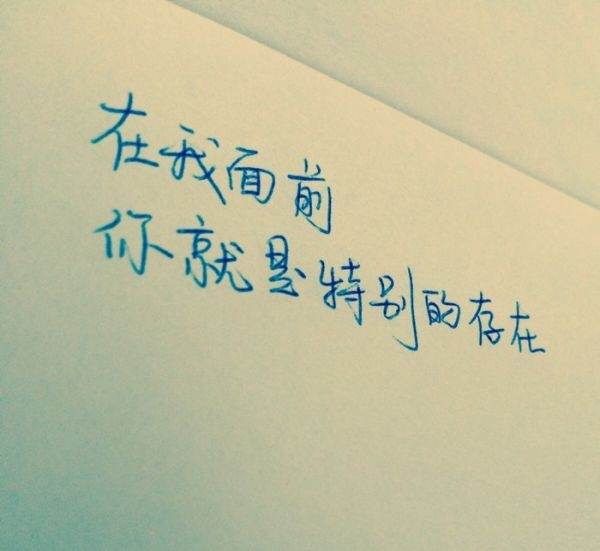 在我面前
你就是特别的存在